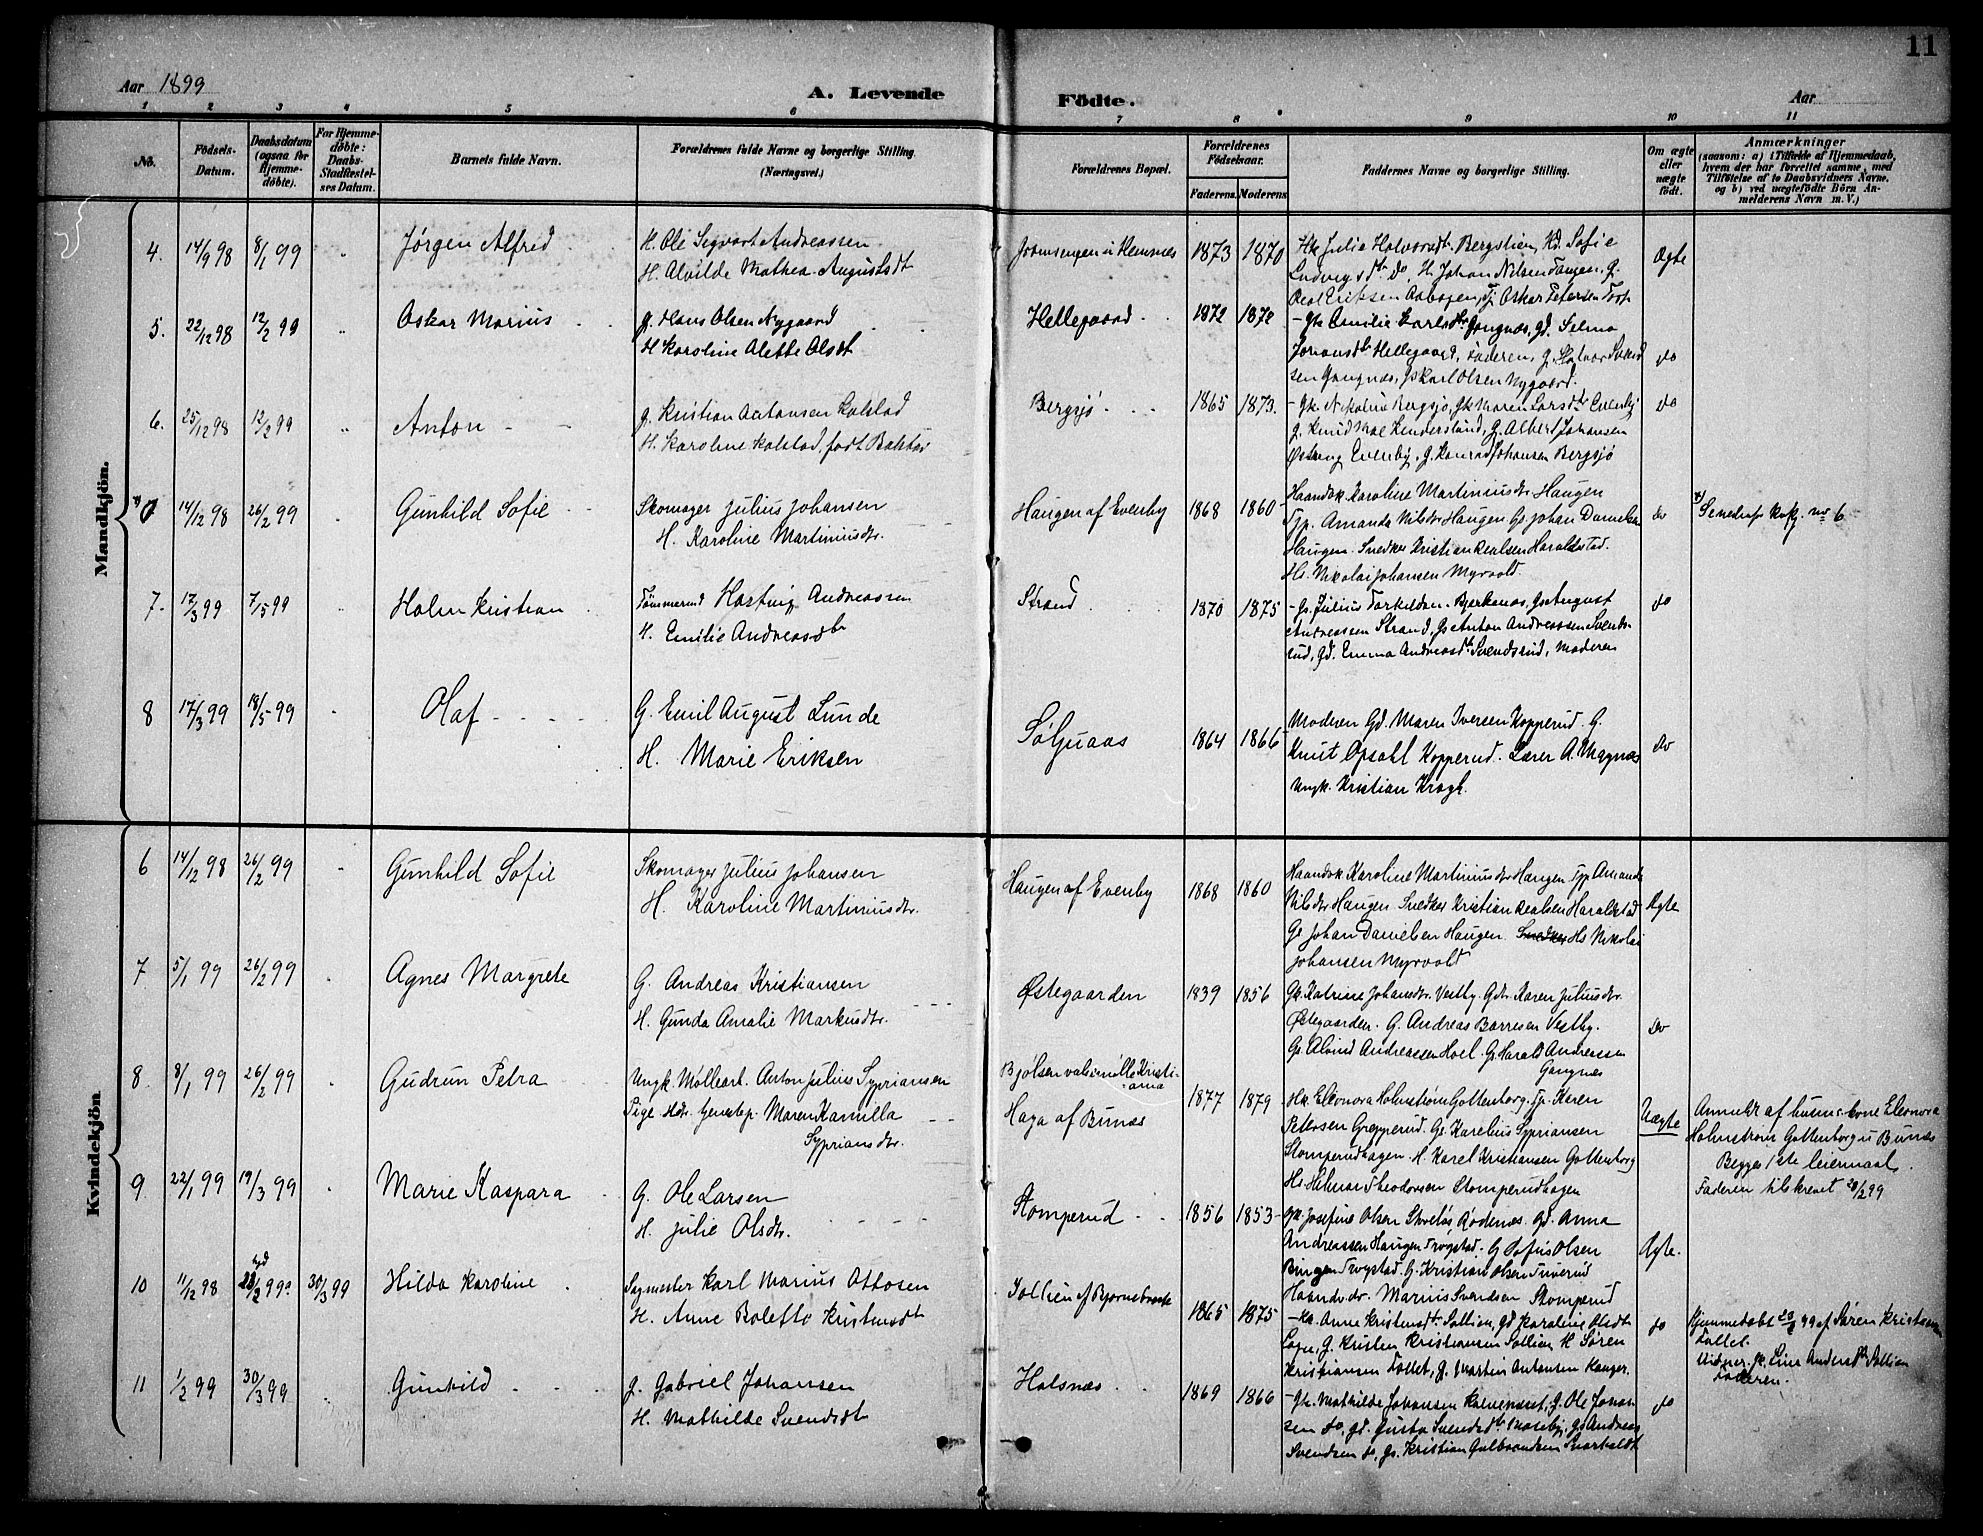 11
Aar 1899
A. Levende
Födte.
Aar
1 2 3 4 5 6 7 8 9 10 11
No.
Födsels-
Datum.
Daabsdatum
(ogsaa for
Hjemme-
döbte).
For Hjemme-
döbte:
Daabs-
Stadfæstel-
ses Datum.
Barnets fulde Navn.
Forældrenes fulde Navne og borgerlige Stilling.
(Næringsvei.)
Forældrenes Bopæl.
Forældrenes
Födselsaar.
Faderens. Moderens.
Faddernes Navne og borgerlige Stilling.
Om ægte
eller
uægte
födt.
Anmærkninger
(saasom: a) i Tilfælde af Hjemmedaab,
hvem der har forrettet samme, med
Tilföielse af to Daabsvidners Navne.
og b) ved uægtefödte Börn An-
melderens Navn m. V.)
Mandkjön.
4. 14/9 98 8/1 99 " Jørgen Alfred
H. Ole Sigvart Andreassen
H. Alvilde Mathea Augustsdt
1873 1870
Ludvigsdtr do, H. Johan Nilsen Tangen, G.
Ægte
5. 22/12 98 12/2 99 " Oskar Marius
G. Hans Olsen Nygaard
H. Karoline Alette Olsdt
Hellegaard 1872
Gk Emilie Karlsdtr Gangnæs, Gd. Selma
Johansdtr Hellegaard, Faderen, G.
sen Gangnæs, Gs Karl Olsen Nygaard.
do
6. 25/12 98 12/2 99 " Anton
G. Kristian Antonsen Kolstad
H. Karoline Kolstad, født
Bergsjø 1865 1873.
Gk. Nikoline Bergsjø, Gk Maren Larsdtr Evenby
G. Albert Johansen
Evenby, G. Konrad Johansen Bergsjø
do
0 14/12 98 26/2 99 " Gunhild Sofie
Skomager Julius Johansen
H. Karoline Martiniusdtr.
Haugen af Evenby 1868 1860
Haandvk. Karoline Martiniusdtr Haugen
Tjp. Amanda Nilsdtr Haugen Gs Johan Danielsen
Haugen. Snedker Kristian Realsen Haraldstad.
Hs. Nikolai Johansen Myrvold.
do
Se nedenfor kvkj. no 6
7. 12/3 99 7/5 99 " Holm Kristian
Tømmermd Hartvig Andreassen
H. Emilie Andreasdtr
Strand 1870 1875
Gs. Julius Torkildsen Bjerkenæs, Gs August
Andreassen Strand, Gs Anton Andreassen Svends-
rud, Gd. Emma Andreasdtr Svendsrud, Moderen
do
8 17/3 99 18/5 99 " Olaf
G. Emil August Lunde
H. Marie Eriksen
Søljuaas 1864 1866
Moderen Gd. Maren Iversen Kopperud. G.
Knut Opsahl Kopperud. Lærer A. Magnæs
Ungk. Kristian Krogh.
do
Kvindekjön
6 14/12 98 26/2 99 " Gunhild Sofie
Skomager Julius Johansen
H. Karoline Martiniusdtr.
Haugen af Evenby 1868 1860
Haandvk Karoline Martiniusdtr Haugen Tjp Amanda
Nilsdtr Haugen Snedker Kristian Realsen Haraldstad
Gs Johan Danielsen Haugen. Snedker Hs Nikolai
Johansen Myrvold
Ægte
7 5/1 99 26/2 99 " Agnes Margrete
G. Andreas Kristiansen
H. Gunda Amalie Markusdtr.
Østegaarden 1839 1856
Gk. Katrine Johansdtr. Vestby. Gdtr. Karen Juliusdtr.
Østegaarden. G. Andreas Borresen Vestby.
Gs. Alvind Andreassen Hoel. Gs Harald Andreassen
Gangnes
do
8. 8/1 99 26/2 99 " Gudrun Petra
Ungk. Møllearb. Anton Julius Syprians​en
Pige Maren Kamilla
Sypriansdtr.
Bjølsen valsemølle Kristi-
ania
Haga af Bunæs 1877 1879
Hk. Eleonora Holmstrøm Gottenborg. Tp. Karen
Petersen Grepperud. Gs. Karelius Sypriansen
Stomperudhagen. H. Karel Kristiansen Gottenborg
Hs. Hilmar Theodorsen Stomperudhagen
Uægte
Anmeldt af Eleonora
Holmstrøm Gottenborg u Bunæs
Begges 1ste leiermaal.
Faderen tilskrevet 28/2 99
9. 22/1 99 19/3 99 " Marie Kaspara
G. Ole Larsen
H. Julie Olsdtr.
Stomperud 1856 1853
Gk. Josefine Olsen Rødenæs. Gd. Anna
Andreassen Haugen Trøgstad. G Sofus Olsen
Bingen Trøgstad. G. Kristian Olsen
Haandv. dr. Marius Svendsen Stomperud
Ægte.
10 11/12 98 30/3 99 Hilda Karoline
Sagmester Karl Marius Ottosen
H. Anne Bolette Kristensdt
Sollien af Bjørnebraate 1865 1875
Ka. Anne Kristensdtr. Sollien, Gd Karoline Olsdt
G. Kristen Kristiansen Sollien H Søren
Kristiansen Tollet, G. Martin Antonsen
do
Hjemmedøbt 99 af Søren Kristiansen
Tollet.
Vidner. Gk. Lina Andersdtr Sollien
Faderen.
11 1/2 99 30/3 99 " Gunhild
G. Gabriel Johansen
H. Mathilde Svendsdt
Holsnæs 1869 1866
Gk. Mathilde Johansen G. Ole Johan-
sen do, Gd. Gusta Svendsdtr Moseby, Gs Andreas
Svendsen do, Gs. Kristian Gulbrandsen
do